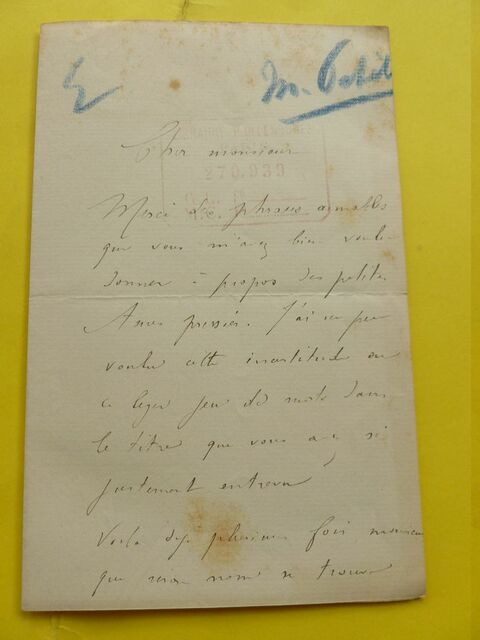 M. Petit
270.939
Cher monsieur
Merci des phrases aimables
que vous m'avez bien voulu
donner à propos des petites
Ames pressées. J'ai un peu
voulu cette incertitude ou
ce léger jeu de mots dans
le titre que vous avez si
justement entrevu
Voilà déjà plusieurs fois monsieur
que mon nom se trouve